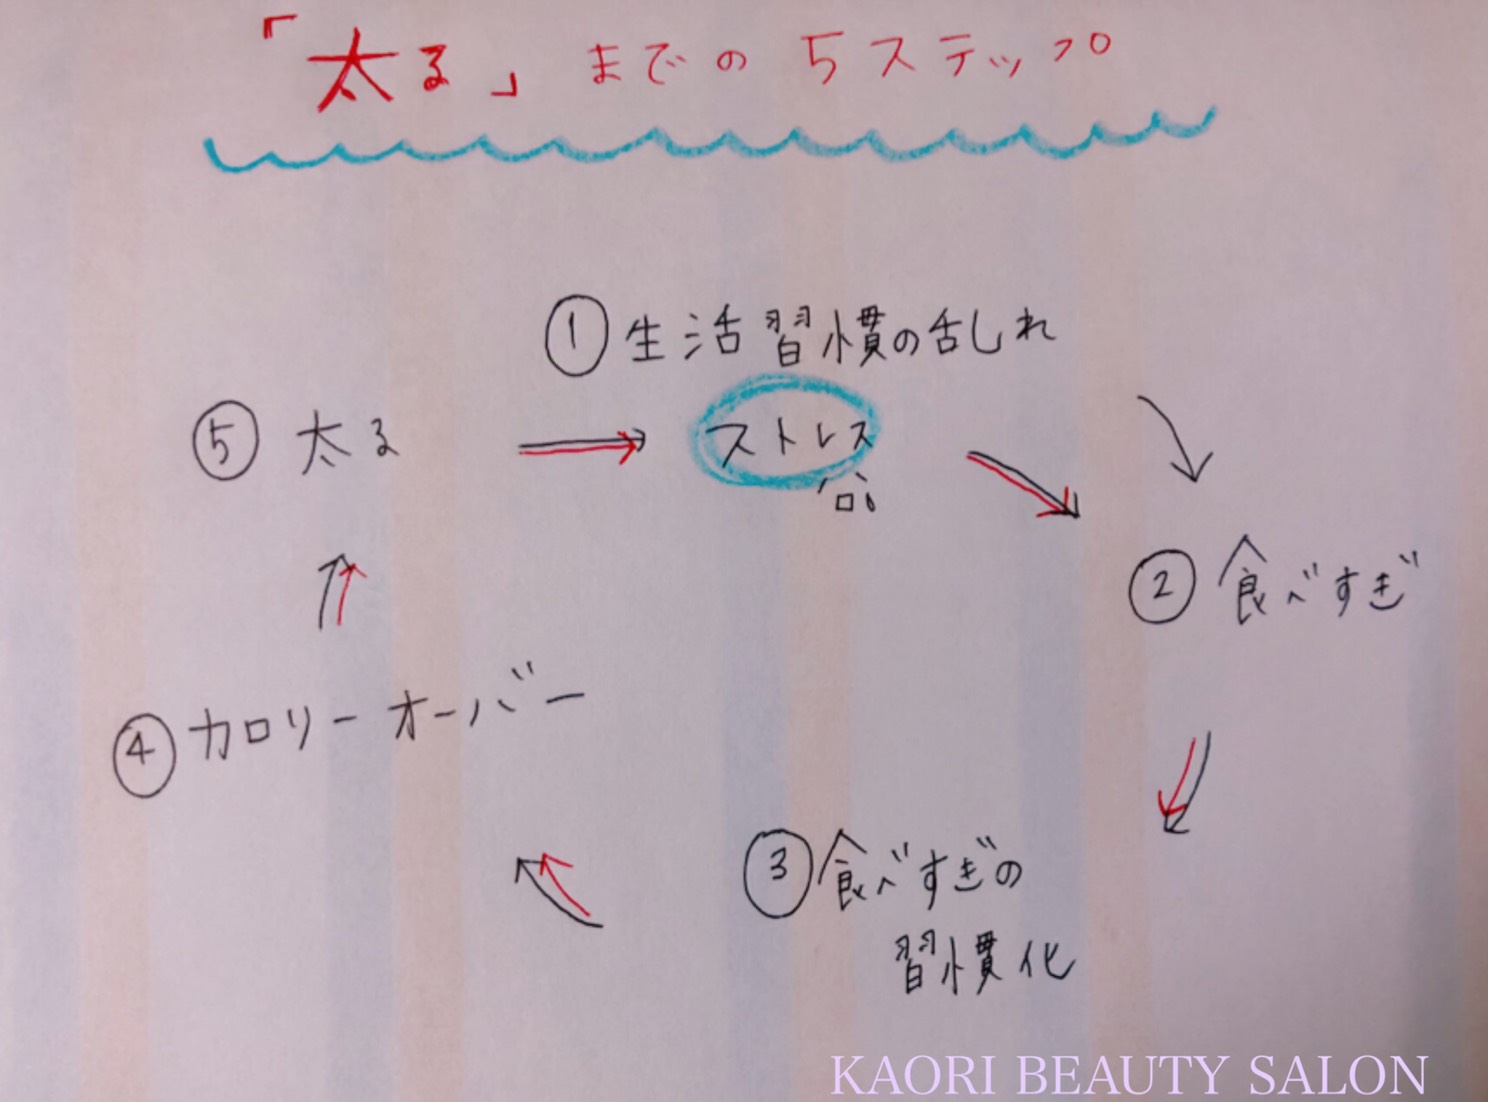 「太る」までの5ステップ
① 生活習慣の乱れ
⑤ 太る
ストレス
② 食べすぎ
④ カロリーオーバー
③ 食べすぎの
習慣化
KAORI BEAUTY SALON